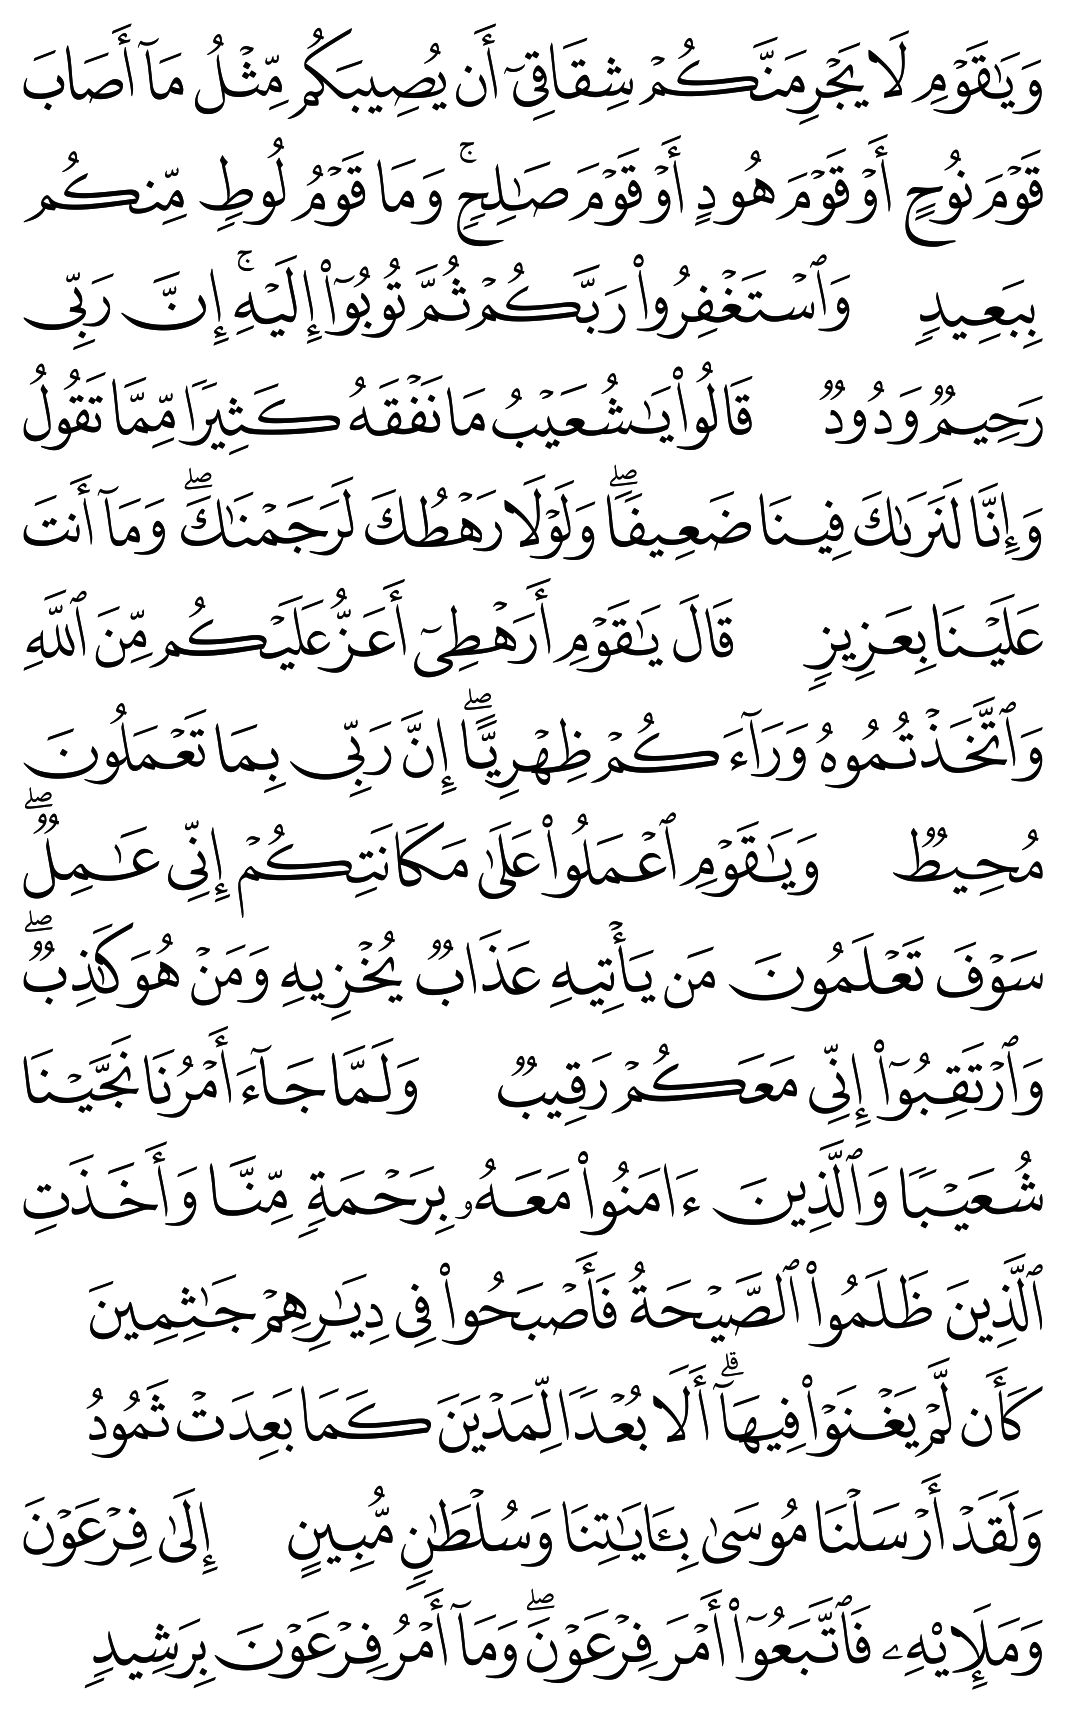 وَيَٰقَوْمِ لَا يَجْرِمَنَّكُمْ شِقَاقِىٓ أَن يُصِيبَكُم مِّثْلُ مَآ أَصَابَ
قَوْمَ نُوحٍ أَوْ قَوْمَ هُودٍ أَوْ قَوْمَ صَٰلِحٍ ۚ وَمَا قَوْمُ لُوطٍ مِّنكُم
بِبَعِيدٍ وَٱسْتَغْفِرُوا۟ رَبَّكُمْ ثُمَّ تُوبُوٓا۟ إِلَيْهِ ۚ إِنَّ رَبِّى
رَحِيمٌ وَدُودٌ قَالُوا۟ يَٰشُعَيْبُ مَا نَفْقَهُ كَثِيرًا مِّمَّا تَقُولُ
وَإِنَّا لَنَرَىٰكَ فِينَا ضَعِيفًا ۖ وَلَوْلَا رَهْطُكَ لَرَجَمْنَٰكَ ۖ وَمَآ أَنتَ
عَلَيْنَا بِعَزِيزٍ قَالَ يَٰقَوْمِ أَرَهْطِىٓ أَعَزُّ عَلَيْكُم مِّنَ ٱللَّهِ
وَٱتَّخَذْتُمُوهُ وَرَآءَكُمْ ظِهْرِيًّا ۖ إِنَّ رَبِّى بِمَا تَعْمَلُونَ
مُحِيطٌ وَيَٰقَوْمِ ٱعْمَلُوا۟ عَلَىٰ مَكَانَتِكُمْ إِنِّى عَٰمِلٌ ۖ
سَوْفَ تَعْلَمُونَ مَن يَأْتِيهِ عَذَابٌ يُخْزِيهِ وَمَنْ هُوَ كَٰذِبٌ ۖ
وَٱرْتَقِبُوٓا۟ إِنِّى مَعَكُمْ رَقِيبٌ وَلَمَّا جَآءَ أَمْرُنَا نَجَّيْنَا
شُعَيْبًا وَٱلَّذِينَ ءَامَنُوا۟ مَعَهُۥ بِرَحْمَةٍ مِّنَّا وَأَخَذَتِ
ٱلَّذِينَ ظَلَمُوا۟ ٱلصَّيْحَةُ فَأَصْبَحُوا۟ فِى دِيَٰرِهِمْ جَٰثِمِينَ
كَأَن لَّمْ يَغْنَوْا۟ فِيهَآ ۗ أَلَا بُعْدًا لِّمَدْيَنَ كَمَا بَعِدَتْ ثَمُودُ
وَلَقَدْ أَرْسَلْنَا مُوسَىٰ بِـَٔايَٰتِنَا وَسُلْطَٰنٍ مُّبِينٍ إِلَىٰ فِرْعَوْنَ
وَمَلَإِي۟هِۦ فَٱتَّبَعُوٓا۟ أَمْرَ فِرْعَوْنَ ۖ وَمَآ أَمْرُ فِرْعَوْنَ بِرَشِيدٍ